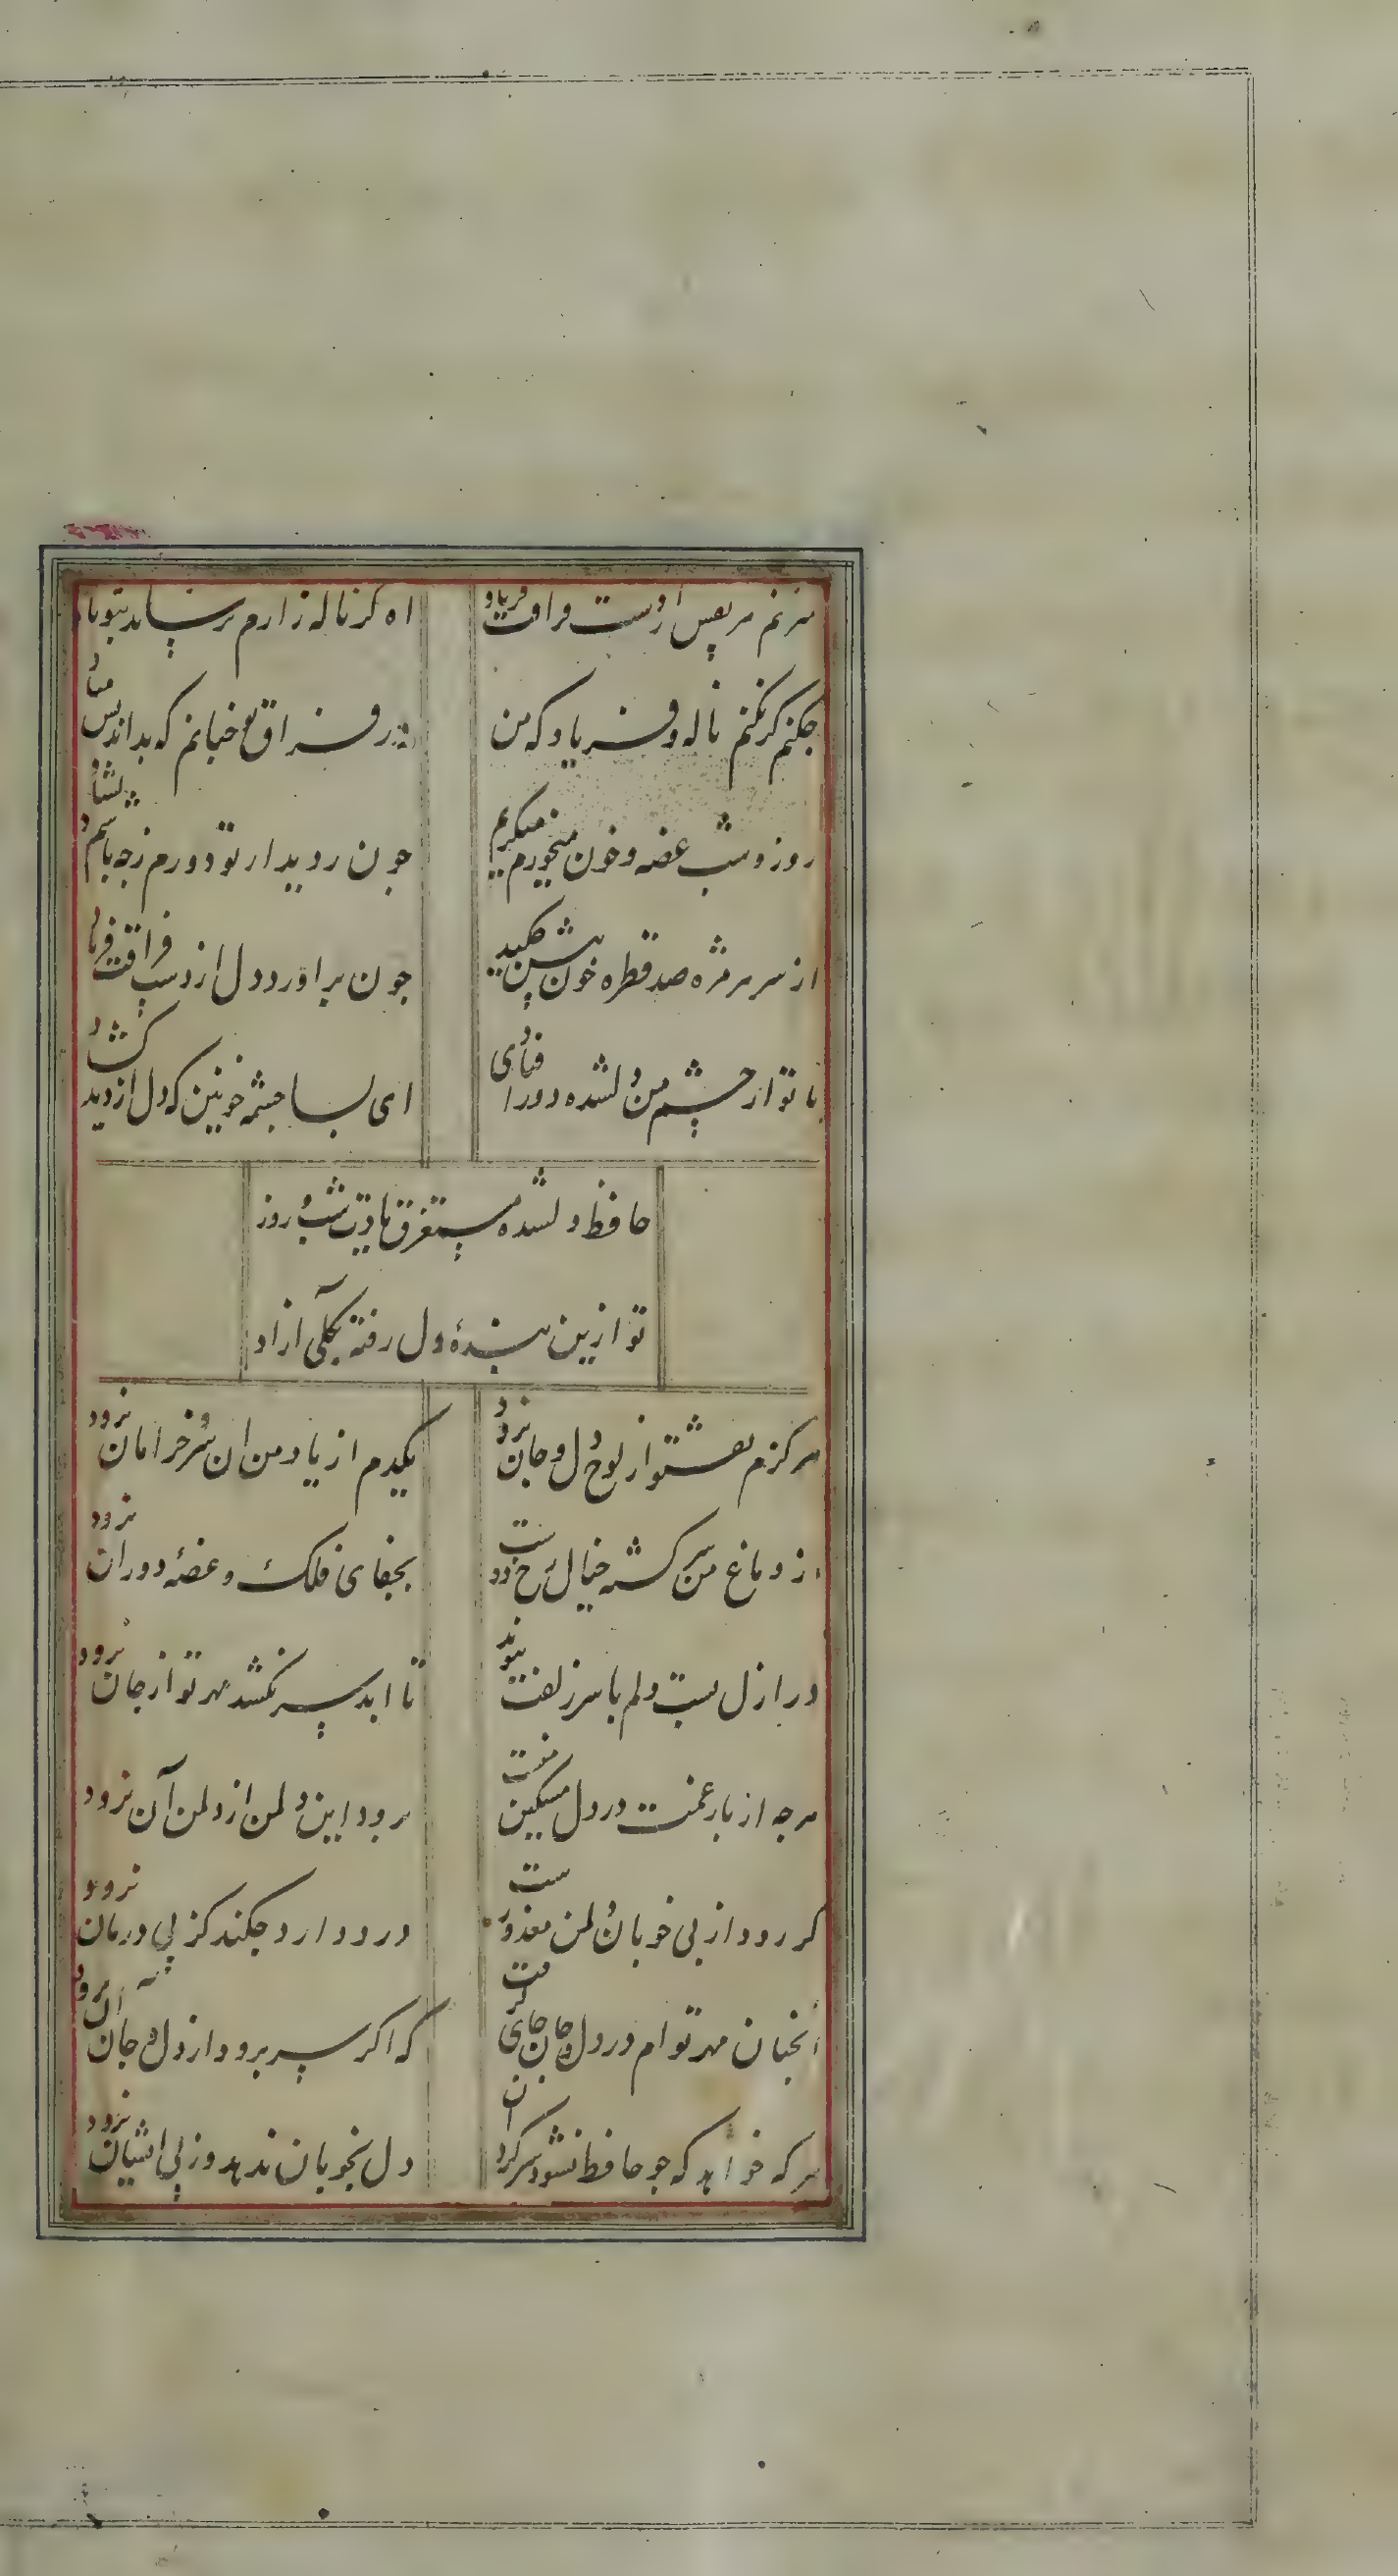 میزنم هر نفس از دست فراقت فریاد
اه کر ناله زارم نرساند بتو باد
جکنم کر نکنم ناله و فریاد که من
در فراق تو جنانم که بداندیش مباد
روز و شب غصه و خون میخورم میکریم
جون ز دیدار تو دورم بجه باشم دلشاد
از سر هر مژه صد قطره خون بیش جکید
جون براورد دل از دست فراقت فریاد
تا تو از جشم من دلشده دور افتادی
ای بسا جشمه خونین که دل از دیده کشاد
حافظ دلشده مستغرق یادت شب و روز
تو ازین بندهٔ دل رفته بکلی ازاد
هرکزم نقش تو از لوح دل و جان نرود
یکدم از یاد من ان سرو خرامان نرود
از دماغ من سرکشته خیال رخ دوست
بجفای فلک و غصهٔ دوران نرود
در ازل بست دلم با سر زلفت پیوند
تا ابد سر نکشد مهر تو از جان نرود
هرجه از بار غمت در دل مسکین منست
برود این دل من از دل من آن نرود
کر رود از پی خوبان دل من معذورست
درد دارد جکند کز پی درمان نرود
انجنان مهر توام در دل و جان جای کرفت
که اکر سر برود از دل و جان ان نرود
هر که خواهد که جو حافظ نشود سرکردان
دل بخوبان ندهد وز پی ایشان نرود